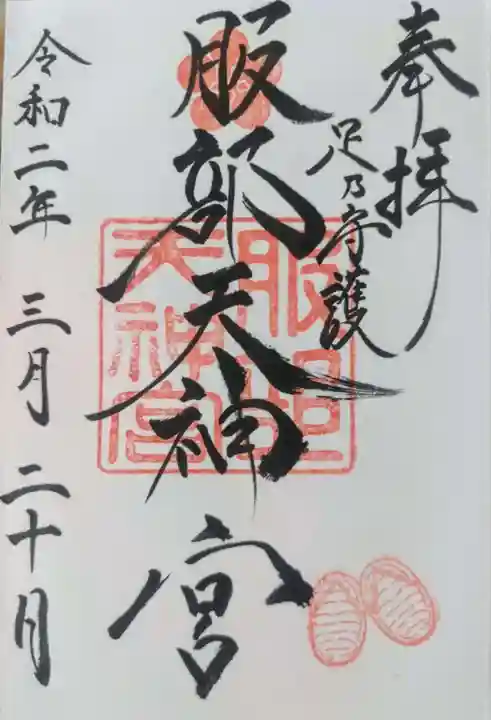 奉拝
足乃守護
服部天神宮
服部
天神宮
令和二年 三月 二十月